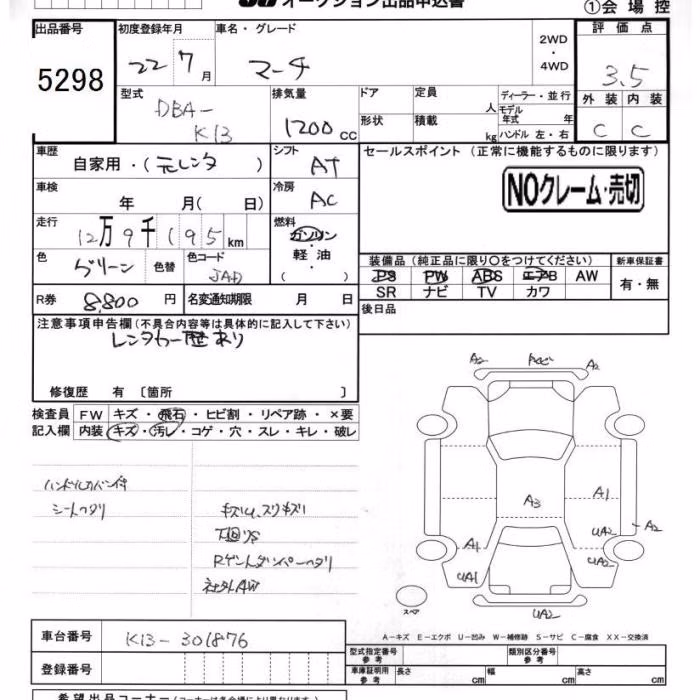 オークション出品申込書
①会場控
出品番号 初度登録年月 車名・グレード 2WD・4WD 評価点
5298
22 7月 マーチ 3.5
型式 排気量 ドア 定員 人 ディーラー・並行 外装 内装
DBA-K13 1200cc 形状 積載 kg モデル年式 年 ハンドル 左・右 C C
車歴 シフト セールスポイント(正常に機能するものに限ります)
自家用・(元レンタ) AT
NOクレーム・売切
車検 年 月(日) 冷房 AC
走行 12万9千195km 燃料 ガソリン・軽油・( )
色 グリーン 色替 色コード JAD
装備品(純正品に限り○をつけてください) 新車保証書
PS PW ABS エアB AW 有・無
SR ナビ TV カワ
R券 8,800円 名変通知期限 月 日 後日品
注意事項申告欄(不具合内容等は具体的に記入して下さい)
レンタカー歴あり
修復歴 有〔箇所 〕
検査員 FW キズ・飛石・ヒビ割・リペア跡・×要
記入欄 内装 キズ・汚レ・コゲ・穴・スレ・キレ・破レ
シートヘタリ
キズU、スリキズ
下回りS
社外AW
A2 A2
A3 A1
A1 UA2 A2
UA1 UA2
スペア UA2
A-キズ E-エクボ U-凹み W-補修跡 S-サビ C-腐食 XX-交換済
車台番号 K13-301876
型式指定番号 参考 類別区分番号 参考
登録番号
車庫証明用 参考 長さ cm 幅 cm 高さ cm
希望出品コーナー